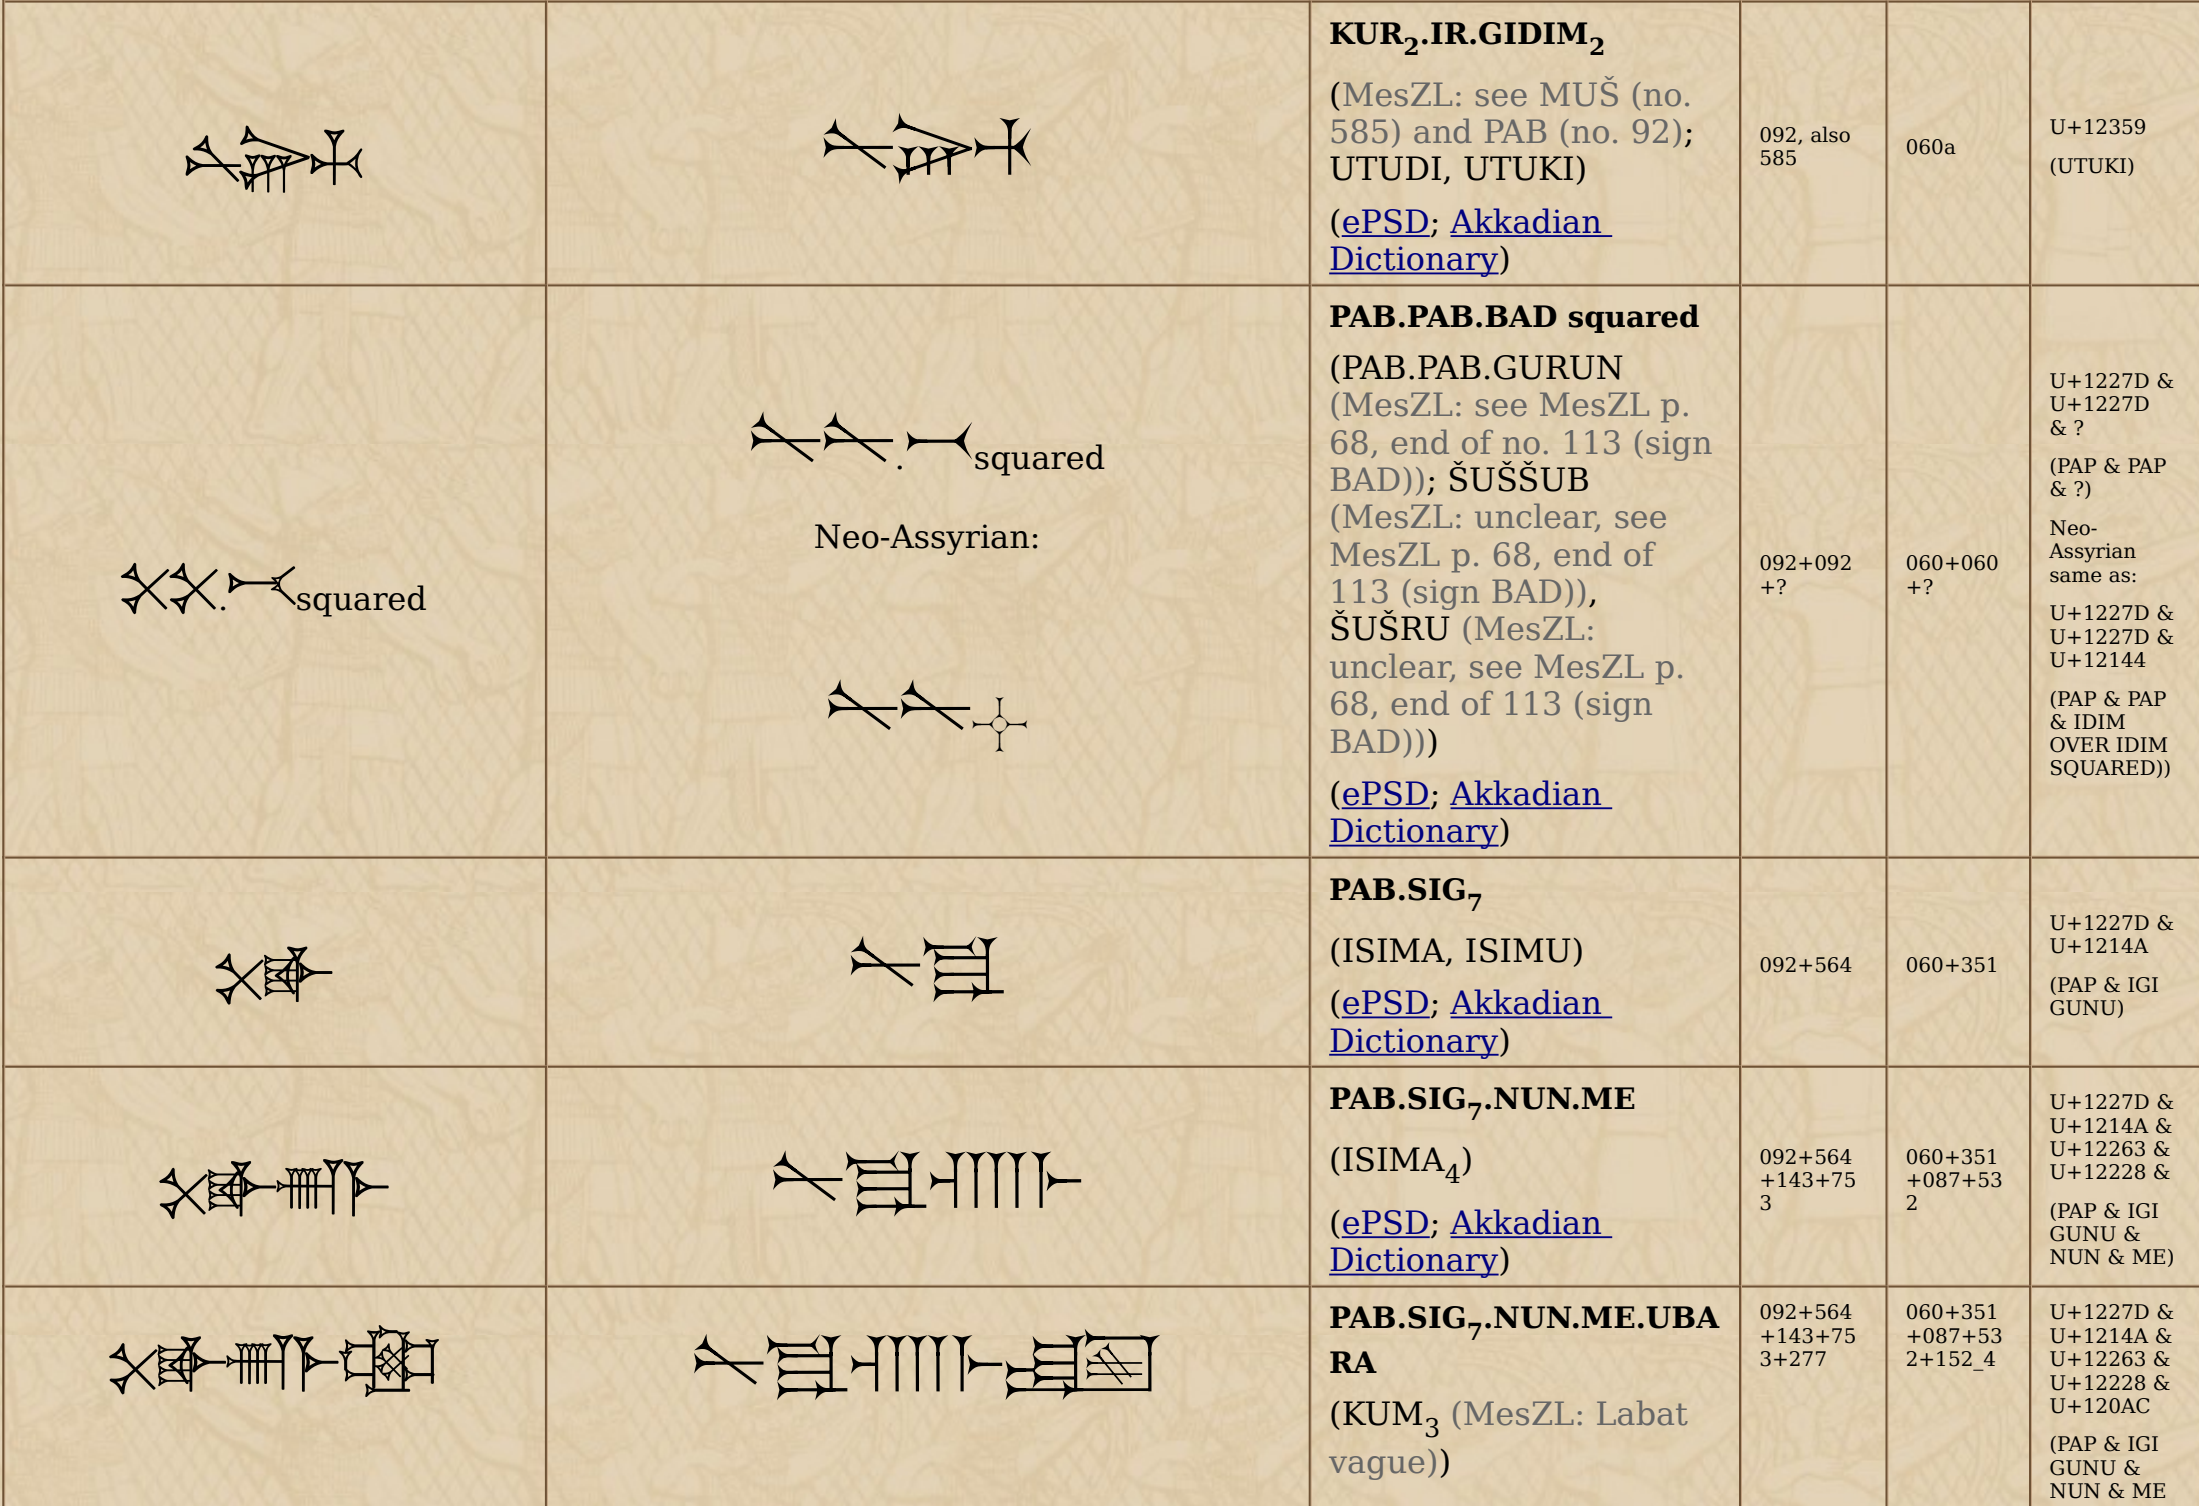 𒍙
𒍙
KUR₂.IR.GIDIM₂
(MesZL: see MUŠ (no.
585) and PAB (no. 92);
UTUDI, UTUKI)
(ePSD; Akkadian
Dictionary)
092, also
585
060a
U+12359
(UTUKI)
𒉽𒉽.𒁁squared
𒉽𒉽.𒁁squared
Neo-Assyrian:
𒉽𒉽𒅄
PAB.PAB.BAD squared
(PAB.PAB.GURUN
(MesZL: see MesZL p.
68, end of no. 113 (sign
BAD)); ŠUŠŠUB
(MesZL: unclear, see
MesZL p. 68, end of
113 (sign BAD)),
ŠUŠRU (MesZL:
unclear, see MesZL p.
68, end of 113 (sign
BAD)))
(ePSD; Akkadian
Dictionary)
092+092
+?
060+060
+?
U+1227D &
U+1227D
& ?
(PAP & PAP
& ?)
Neo-
Assyrian
same as:
U+1227D &
U+1227D &
U+12144
(PAP & PAP
& IDIM
OVER IDIM
SQUARED))
𒉽𒅊
𒉽𒅊
PAB.SIG₇
(ISIMA, ISIMU)
(ePSD; Akkadian
Dictionary)
092+564
060+351
U+1227D &
U+1214A
(PAP & IGI
GUNU)
𒉽𒅊𒉣𒈨
𒉽𒅊𒉣𒈨
PAB.SIG₇.NUN.ME
(ISIMA₄)
(ePSD; Akkadian
Dictionary)
092+564
+143+75
3
060+351
+087+53
2
U+1227D &
U+1214A &
U+12263 &
U+12228 &
(PAP & IGI
GUNU &
NUN & ME)
𒉽𒅊𒉣𒈨𒂬
𒉽𒅊𒉣𒈨𒂬
PAB.SIG₇.NUN.ME.UBA
RA
(KUM₃ (MesZL: Labat
vague))
092+564
+143+75
3+277
060+351
+087+53
2+152_4
U+1227D &
U+1214A &
U+12263 &
U+12228 &
U+120AC
(PAP & IGI
GUNU &
NUN & ME